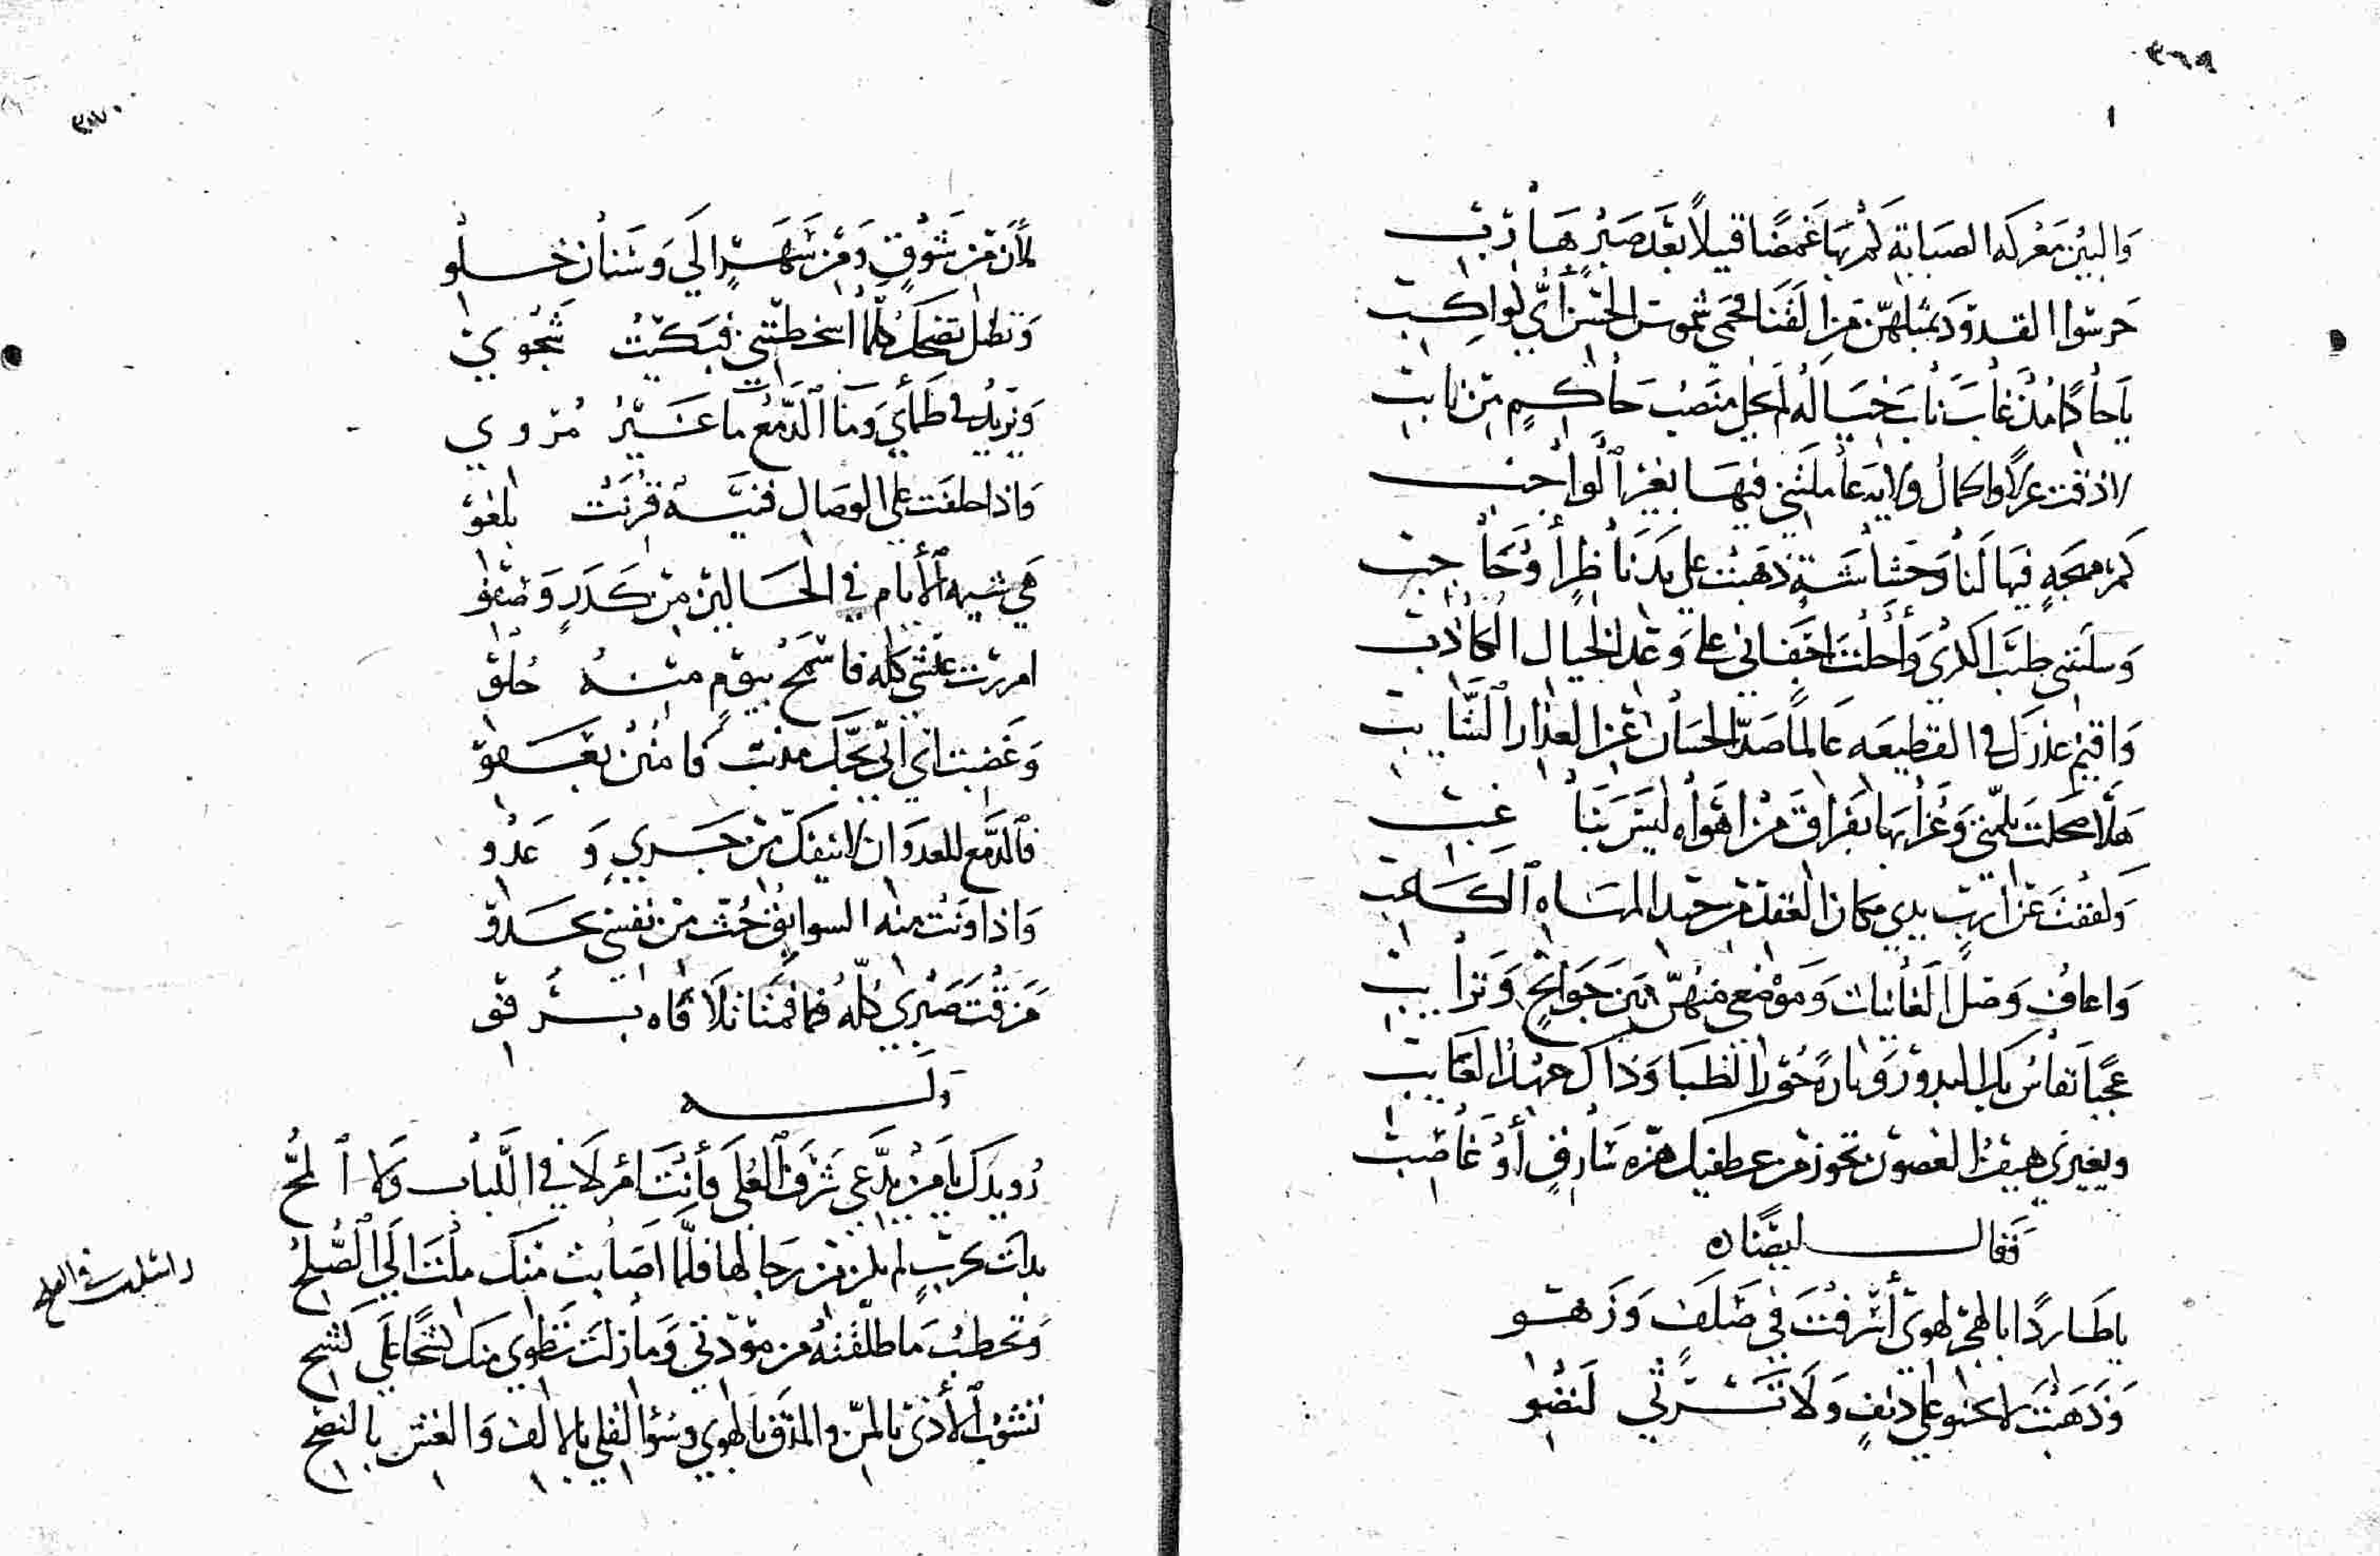 ٣٦٩
١
وَالبَيْن مَعْرَكه الصَبَابَةِ كَم بهَا غَمضًا قتيلاً بَعْدَ صَبْرٍ هَاربِ
حَرسَوا القدودَ بمثلهنّ مِن القَنَا فحمى شموسَ الحُسْن أىّ كواكبِ
يَا جَائرًا مُذ غابَ نابَ خيَاله لم يخل منصبُ حَاكمٍ مِن نايبِ
لا ذقت عزلا واكمال ولايه عَاملتني فيهَا بغير الوَاجبِ
كم مهجةٍ فيهَا لنَا وَحشاشَةٍ ذهَبتْ على يَد نَاظرٍ أو حَاجبِ
وَسلبتني طيبَ الكرى وَأحلتَ اجفاني على وَعْد الخيال الكاذبِ
وَاقيم عذرَك في القطيعَه عَالمًا صَدّ الحسَان عَن العذار الشَّايبِ
هَلا محلت بلمّتي وَغرابهَا بفراق مَنْ اهْوَاه ليسَ بنَا غبِ
وَلففتَ عن اربٍ يدي مكان العقد من جيد المهَاه الكَاعبِ
وَاعافُ وَصْلَ الغانيات وَمَوْضعي منهُنّ بَين جَوَانحٍ وَترايبِ
عجَبًا تقاسُ بك البدور وَتارةً حُور الظبَا وَذاك جهْد العَايبِ
وبغيرَي هيف الغصون تحوز من عطفيك هزّه سَارقٍ أوْ غَاصبِ
فقال ايضًا ره
يا طَاردًا بالهجر لهوى أشرفتَ في صَلَفٍ وَزَهْو
وَذهَبتَ لا تحنو على دنفٍ وَلَا تَرثي لنضْو
٣٧٠
لأن من شوقٍ وَمن سَهَرٍ الى وَسْنان خلو
وَتظل تضحك كلّما اسخطتني فبكيتُ شجْوي
وَتريدُ في ظمأي وَمَا الدَّمعُ مَا عَيْنُ مُرْوي
وَاذا حلفت على الوصَال فنيَّه قُرنَتْ بلغو
هَي شيمه الأيام في الحَالين مِن كدَرٍ وَصَفو
امررت عيشي كله فاسمَحْ بيوْمٍ منه حُلو
وَغضبت ان انّي بحبّك مذنب فامنن بعَفو
فالدَّمع للعدوَان لا ينفكّ من جَري وَعَدْو
وَاذا وَنت منه السوابق حُثّ من نفسي بحَدْو
مَزقت صَبْري كلّهُ فما فمَنَا تلاقاه برَفو
وَلَه
رُويدَك يا مَن يدَّعي شرَفَ العُلَى فأنتَ امرؤ لا في اللُّبَاب وَلا المُحّ
بدأت بحربٍ لم تكن من رجَالهَا فلمّا اصَابت منك ملْتَ الى الصُّلح
وَتخطبُ مَا طلّقتهُ من مَوَدّتي وَمَا زلتَ تنطوي منك كشحًا على كشح
تشوبُ الأذى بالمنّ والمذق بالهوى وسُؤ القلى بالالف وَالغش بالنصْح